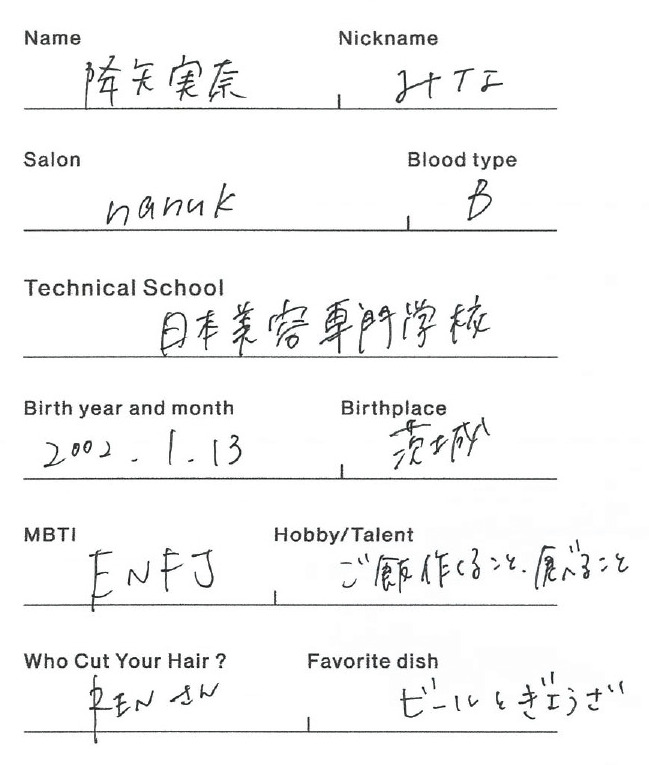 Name Nickname
降矢実奈
Salon Blood type
nanuk B
Technical School
日本美容専門学校
Birth year and month Birthplace
2002.1.13 茨城
MBTI Hobby/Talent
ENFJ ご飯作ること、食べること
Who Cut Your Hair ? Favorite dish
RENさん ビールとぎょうざ